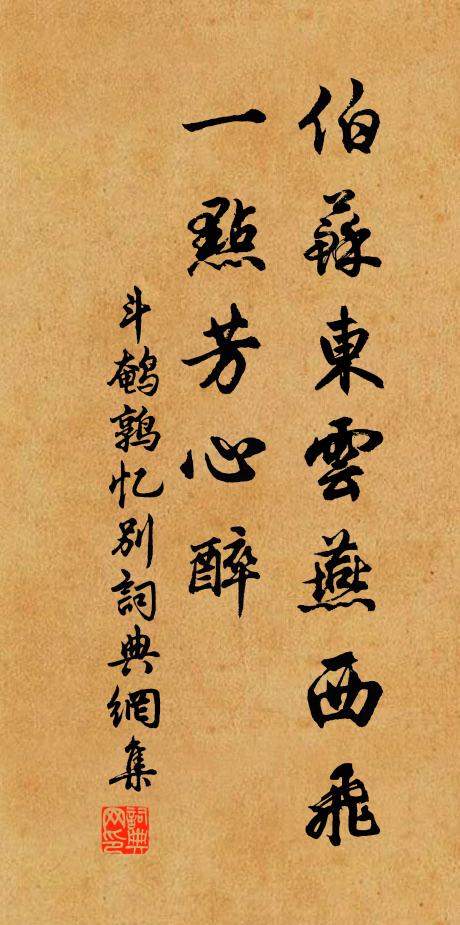 伯蘇東雲燕西飛
一點芳心醉
斗鹌鹑忆别詞典網集
詞典网印